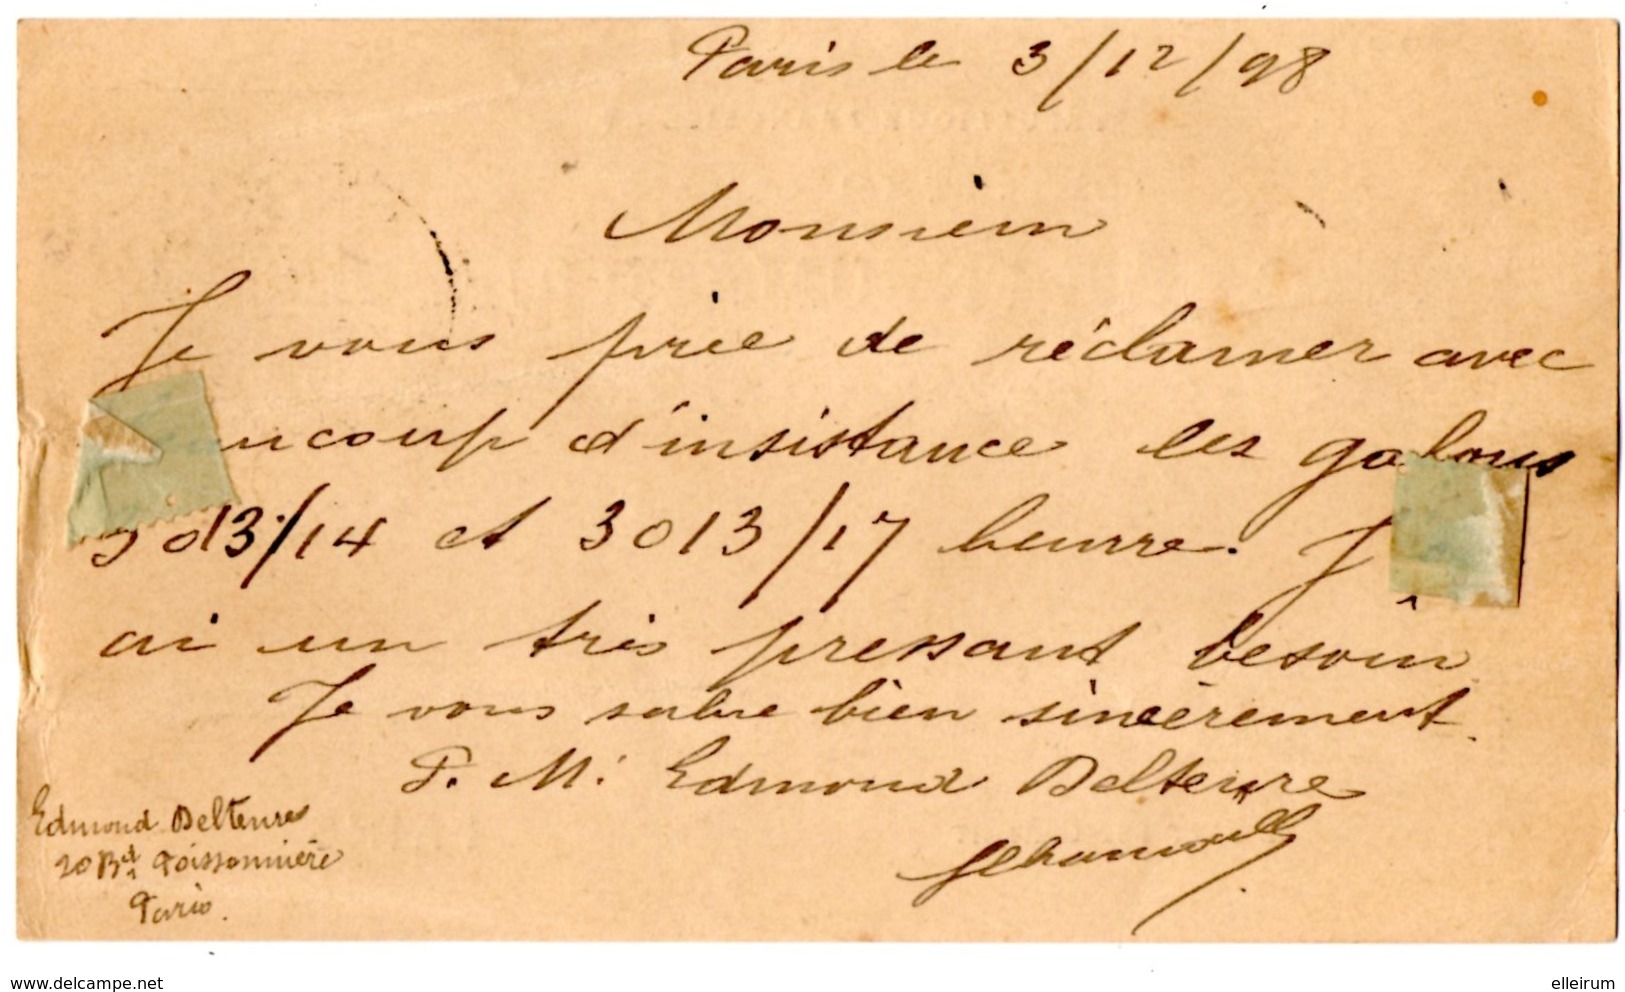 Paris le 3/12/98
Monsieur
Je vous prie de réclamer avec
ucoup d'insistance les galons
3013/14 et 3013/17 beurre. J
ai un très pressant besoin
Je vous salue bien sincèrement.
P. M. Edmond Delteure
Edmond Delteure
20 Bd Poissonnière
Paris.
www.delcampe.net
elleirum